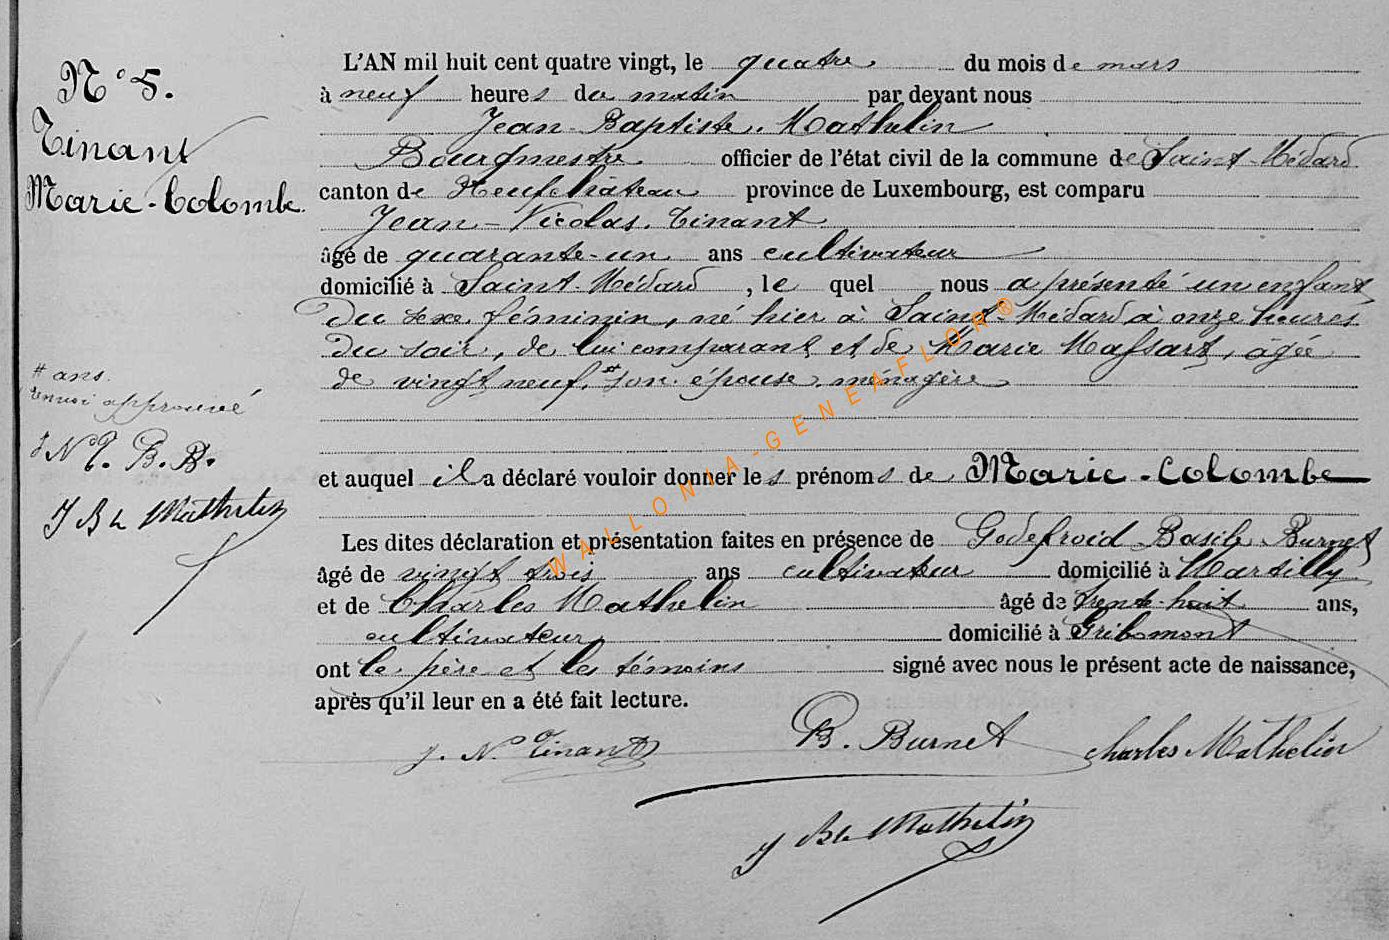 N° 5.
Tinant
Marie-Colombe.
L'AN mil huit cent quatre vingt, le quatre du mois de mars
à neuf heures du matin par devant nous
Jean-Baptiste Mathelin
Bourgmestre officier de l'état civil de la commune de Saint-Médard
canton de Neufchâteau province de Luxembourg, est comparu
Jean-Nicolas Tinant
âgé de quarante-un ans cultivateur
domicilié à Saint-Médard, le quel nous a présenté un enfant
du sexe féminin, né hier à Saint-Médard à onze heures
du soir, de lui comparant et de Marie Massart, âgée
de vingt neuf, # son épouse, ménagère
# ans.
renvoi approuvé
J N T. B. B.
J Bte Mathelin
et auquel il a déclaré vouloir donner les prénoms de Marie-Colombe
Les dites déclaration et présentation faites en présence de Godefroid Basile Burnet
âgé de vingt trois ans cultivateur domicilié à Martilly
et de Charles Mathelin âgé de trente-huit ans,
cultivateur, domicilié à Gribomont
ont le père et les témoins signé avec nous le présent acte de naissance,
après qu'il leur en a été fait lecture.
J. N. Tinant
B. Burnet
Charles Mathelin
J Bte Mathelin
WALLONIA-GENEAFLOR®